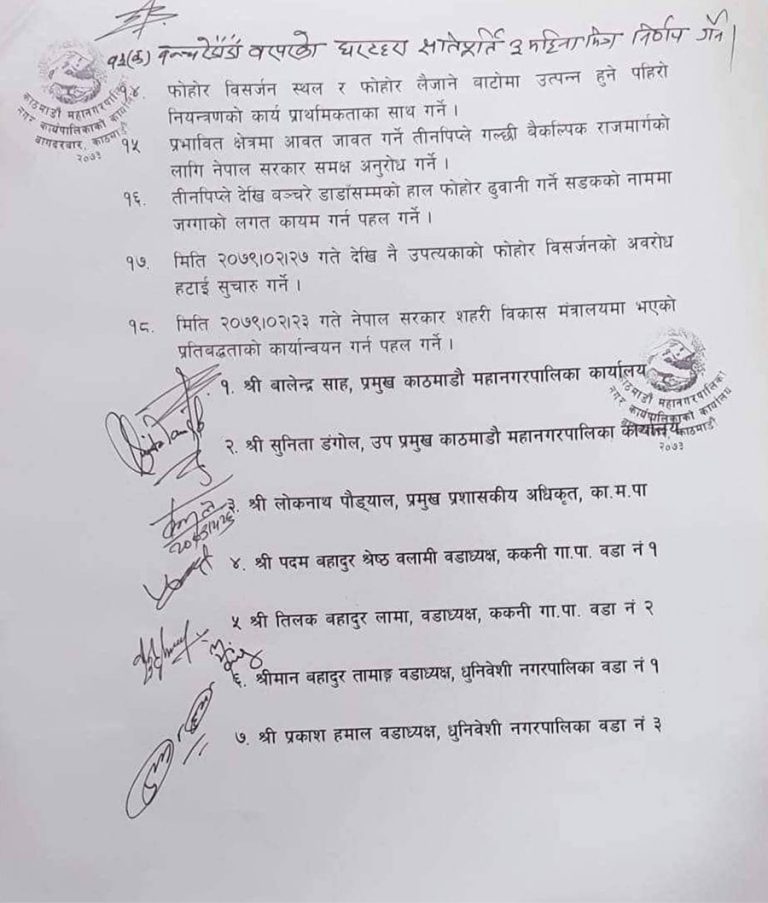 १३(क) बन्चरेडाँडा वरपरको घरटहरा क्षतिपूर्ति ३ महिना भित्र निर्णय गर्ने।
काठमाडौं महानगरपालिका
नगर कार्यपालिकाको कार्यालय
बागदरबार, काठमाडौं
२०७३
१४. फोहोर विसर्जन स्थल र फोहोर लैजाने बाटोमा उत्पन्न हुने पहिरो
नियन्त्रणको कार्य प्राथमिकताका साथ गर्ने ।
१५ प्रभावित क्षेत्रमा आवत जावत गर्ने तीनपिप्ले गल्छी वैकल्पिक राजमार्गको
लागि नेपाल सरकार समक्ष अनुरोध गर्ने ।
१६. तीनपिप्ले देखि बञ्चरे डाडाँसम्मको हाल फोहोर ढुवानी गर्ने सडकको नाममा
जग्गाको लगत कायम गर्न पहल गर्ने ।
१७. मिति २०७९।०२।२७ गते देखि नै उपत्यकाको फोहोर विसर्जनको अवरोध
हटाई सुचारु गर्ने ।
१८. मिति २०७९।०२।२३ गते नेपाल सरकार शहरी विकास मंत्रालयमा भएको
प्रतिवद्धताको कार्यान्वयन गर्न पहल गर्ने ।
१. श्री बालेन्द्र साह, प्रमुख काठमाडौ महानगरपालिका कार्यालय
काठमाडौं महानगरपालिका
नगर कार्यपालिकाको कार्यालय
काठमाडौं
२०७३
२. श्री सुनिता डंगोल, उप प्रमुख काठमाडौ महानगरपालिका कार्यालय
३. श्री लोकनाथ पौड्याल, प्रमुख प्रशासकीय अधिकृत, का.म.पा
४. श्री पदम बहादुर श्रेष्ठ वलामी वडाध्यक्ष, ककनी गा.पा. वडा नं १
५ श्री तिलक बहादुर लामा, वडाध्यक्ष, ककनी गा.पा. वडा नं २
६. श्रीमान बहादुर तामाङ्ग वडाध्यक्ष, धुनिवेशी नगरपालिका वडा नं १
७. श्री प्रकाश हमाल वडाध्यक्ष, धुनिवेशी नगरपालिका वडा नं ३